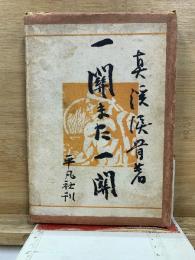 真渓涙骨著
一関また一関
平凡社刊